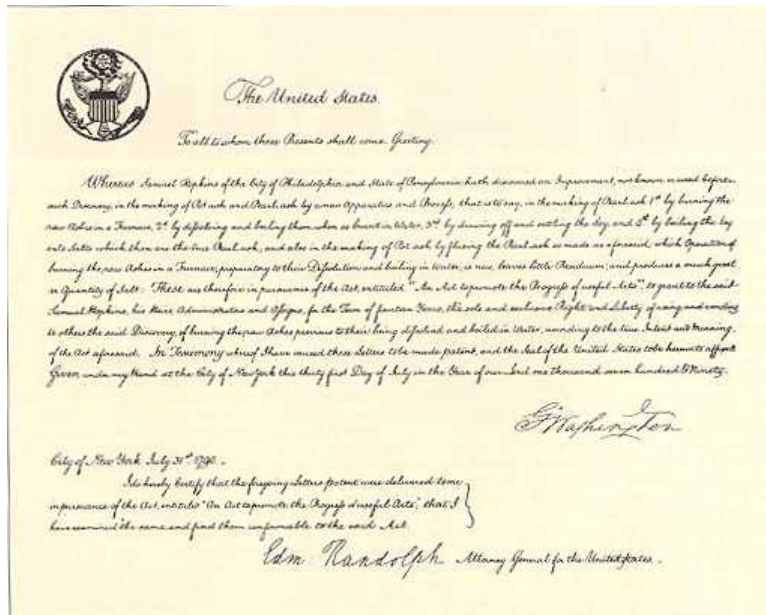 The United States.
To all to whom these Presents shall come. Greeting.
Whereas Samuel Hopkins of the City of Philadelphia and State of Pensylvania hath discovered an Improvement, not known or used before
such Discovery, in the making of Pot ash and Pearl ash by a new Apparatus and Process, that is to say, in the making of Pearl ash 1st by burning the
raw Ashes in a Furnace, 2d by dissolving and boiling them when so burnt in Water, 3rd by drawing off and settling the Ley, and 4th by boiling the Ley
into Salts which then are the true Pearl ash, and also in the making of Pot ash by fluxing the Pearl ash so made as aforesaid; which Operation of
burning the raw Ashes in a Furnace, preparatory to their Dissolution and boiling in Water, is new, leaves little Residuum; and produces a much great
er Quantity of Salt: These are therefore in pursuance of the Act, entituled "An Act to promote the Progress of useful Arts", to grant to the said
Samuel Hopkins, his Heirs, Administrators and Assigns, for the Term of fourteen Years, the sole and exclusive Right and Liberty of using and vending
to others the said Discovery, of burning the raw Ashes previous to their being dissolved and boiled in Water, according to the true Intent and Meaning
of the Act aforesaid. In Testimony whereof I have caused these Letters to be made patent, and the Seal of the United States to be hereunto affixed
Given under my Hand at the City of New York this thirty first Day of July in the Year of our Lord one thousand seven hundred & Ninety.
G Washington
City of New York July 31st 1790.
I do hereby Certify that the foregoing Letters patent were delivered to me
in pursuance of the Act, entituled "An Act to promote the Progress of useful Arts"; that I
have examined the same and find them conformable to the said Act.
Edm Randolph Attorney General for the United States.